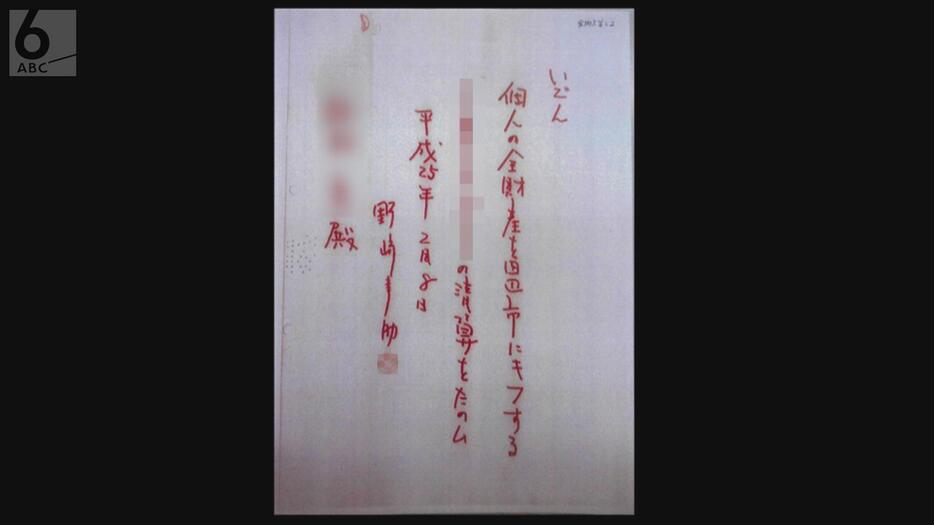 いごん
個人の全財産を田辺市にキフする
の清算をたのム
平成25年2月8日
野崎幸助
殿
6
ABC